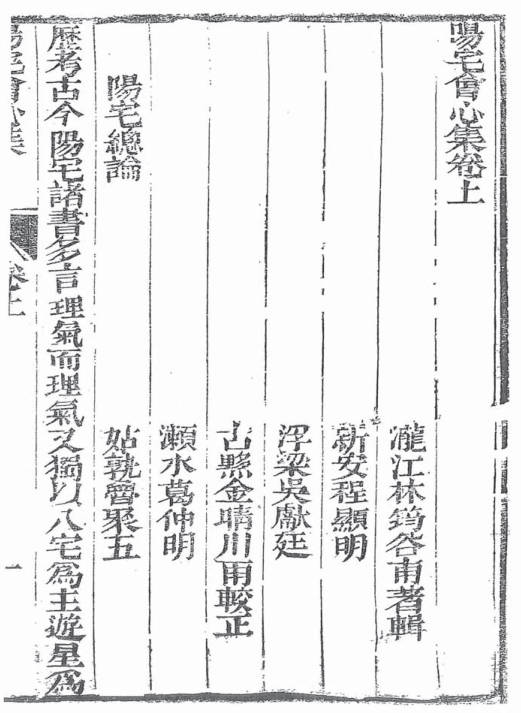 陽宅會心集卷上
瀧江林筠谷甫著輯
新安程顯明
浮梁吳獻廷
古縣金晴川甫較正
瀨水葛仲明
姑孰魯聚五
陽宅總論
歷考古今陽宅諸書多言理氣而理氣又獨以八宅為主遊星為
陽宅會心集
卷上
一